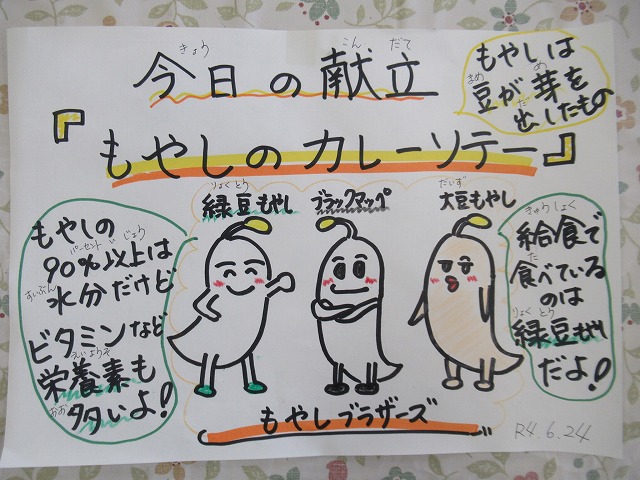 今日の献立
きょう こんだて
もやしは
豆が芽を
まめ め
出したもの
だ
『もやしのカレーソテー』
緑豆もやし
りょくとう
ブラックマッペ
大豆もやし
だいず
もやしの
90%以上は
パーセント いじょう
水分だけど
すいぶん
ビタミンなど
栄養素も
えいようそ
多いよ!
おお
給食で
きゅうしょく
食べている
た
のは
緑豆もやし
りょくとう
だよ!
もやしブラザーズ
R4.6.24